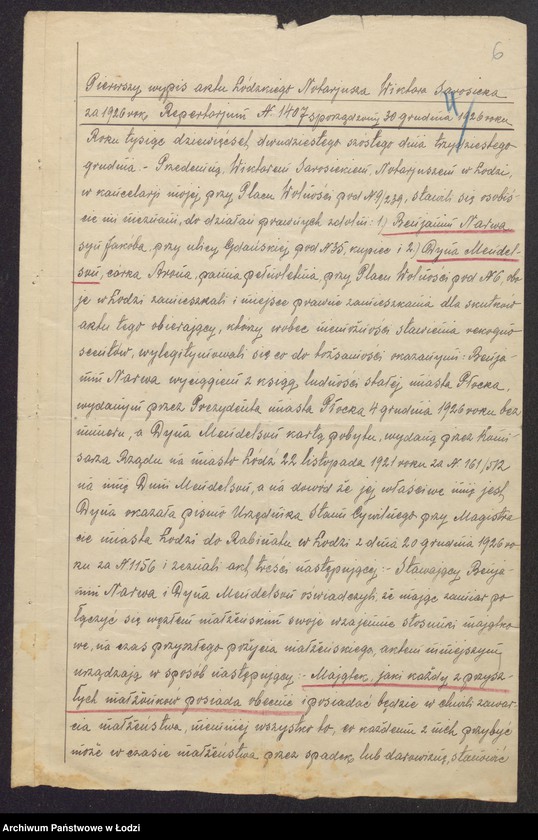 6
Pierwszy wypis aktu Łódzkiego Notarjusza Wiktora Sarosieka
za 1926 rok, Repertorjum N. 1407 sporządzony 30 grudnia 1926 roku.
Roku tysiąc dziewięćset dwudziestego szóstego dnia trzydziestego
grudnia. - Przedemną, Wiktorem Sarosiekiem, Notarjuszem w Łodzi,
w kancelarji mojej przy Placu Wolności pod N 9/239, stawili się osobiś-
cie mi nieznani, do działań prawnych zdolni: 1) Benjamin Narwa
syn Jakóba, przy ulicy Gdańskiej pod N 35, kupiec i 2) Dyna Mendel-
son, córka Arona, panna pełnoletnia, przy Placu Wolności pod N 6, obo-
je w Łodzi zamieszkali i miejsce prawne zamieszkania dla skutków
aktu tego obierający, którzy wobec niemożności stawienia rekogno-
scentów, wylegitymowali się co do tożsamości okazanymi: Benja-
min Narwa wyciągiem z ksiąg ludności stałej miasta Płocka,
wydanym przez Prezydenta miasta Płocka 4 grudnia 1926 roku bez
numeru, a Dyna Mendelson kartą pobytu, wydaną przez Komi-
sarza Rządu na miasto Łódź 22 listopada 1921 roku za N. 161/512
na imię Dyni Mendelson, a na dowód że jej właściwe imię jest
Dyna okazała pismo Urzędnika Stanu Cywilnego przy Magistra-
cie miasta Łodzi do Rabinatu w Łodzi z dnia 20 grudnia 1926 ro-
ku za N 1156 i zeznali akt treści następującej: - Stawający Benja-
min Narwa i Dyna Mendelson oświadczyli, że mając zamiar po-
łączyć się węzłem małżeńskim swoje wzajemne stosunki majątko-
we, na czas przyszłego pożycia małżeńskiego, aktem niniejszym
urządzają w sposób następujący: - Majątek, jaki każdy z przysz-
łych małżonków posiada obecnie i posiadać będzie w chwili zawar-
cia małżeństwa, niemniej wszystko to, co każdemu z nich przybyć
może w czasie małżeństwa przez spadek, lub darowiznę, stanowić
Archiwum Państwowe w Łodzi